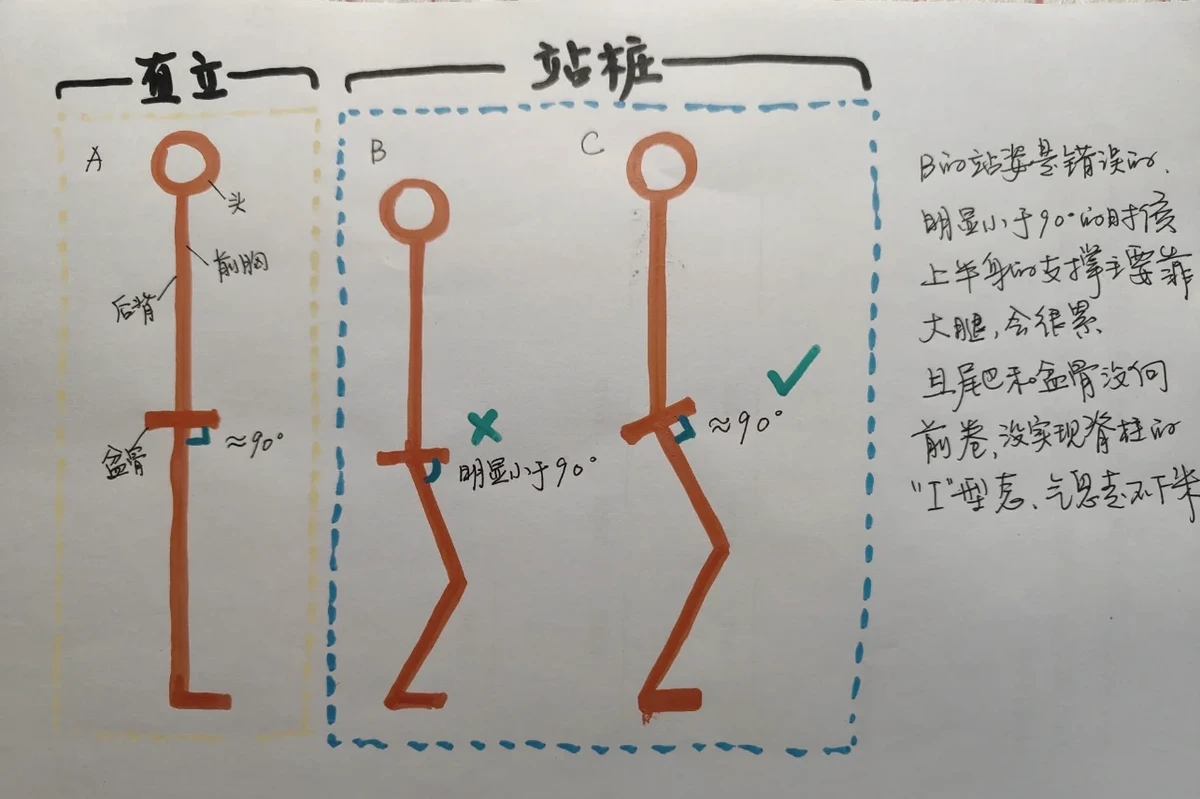 直立
站桩
A
头
前胸
后背
盆骨
≈90°
B
×
明显小于90°
C
✓
≈90°
B的站姿是错误的.
明显小于90°的时候
上半身的支撑主要靠
大腿,会很累
且尾巴和盆骨没向
前卷,没实现脊柱的
"I"型态、气息走不下来